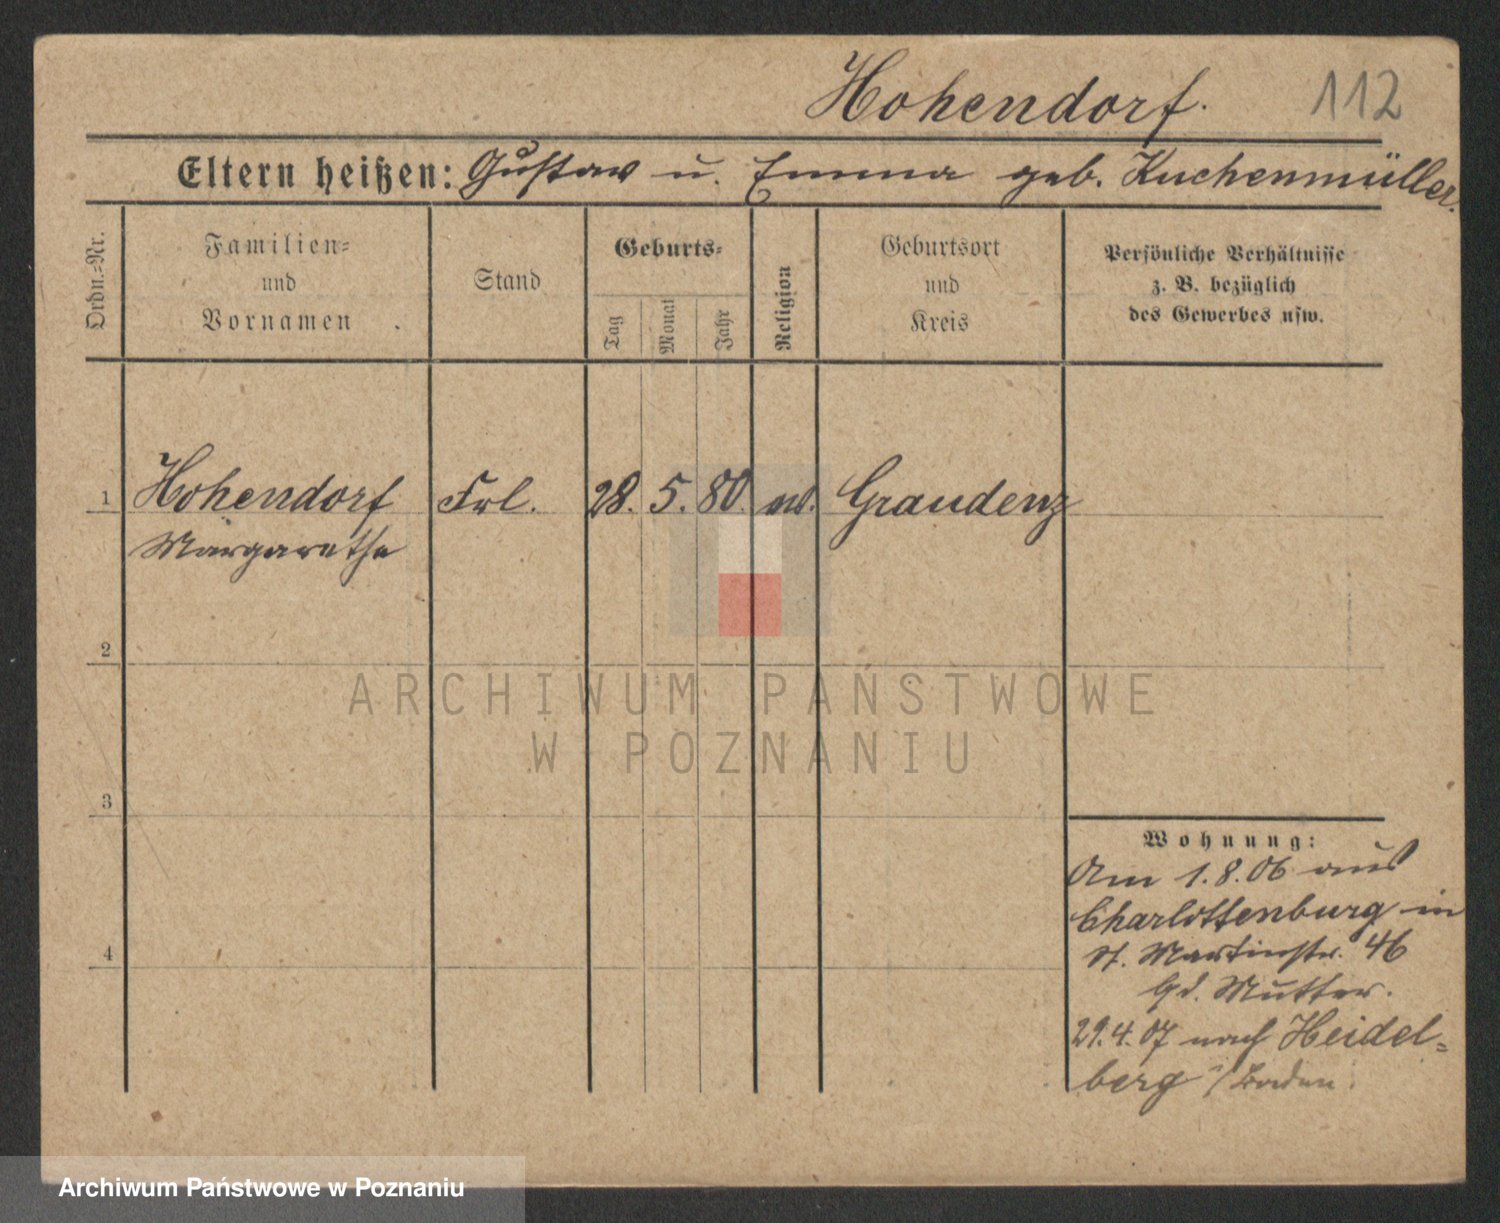 Hohendorf. 112
Eltern heißen: Gustav u. Emma geb. Kuchenmüller.
Ordn.-Nr.
Familien-
und
Vornamen
Stand
Geburts-
Tag
Monat
Jahr
Religion
Geburtsort
und
Kreis
Persönliche Verhältnisse
z. B. bezüglich
des Gewerbes usw.
1 Hohendorf Frl. 28. 5. 80. Graudenz
Margarethe
2
3
4
ARCHIWUM PAŃSTWOWE
W POZNANIU
Wohnung:
Am 1.8.06 aus
Charlottenburg in
St. Martinstr. 46
Mutter.
29.4.07 nach Heidel=
berg i/Baden.
Archiwum Państwowe w Poznaniu